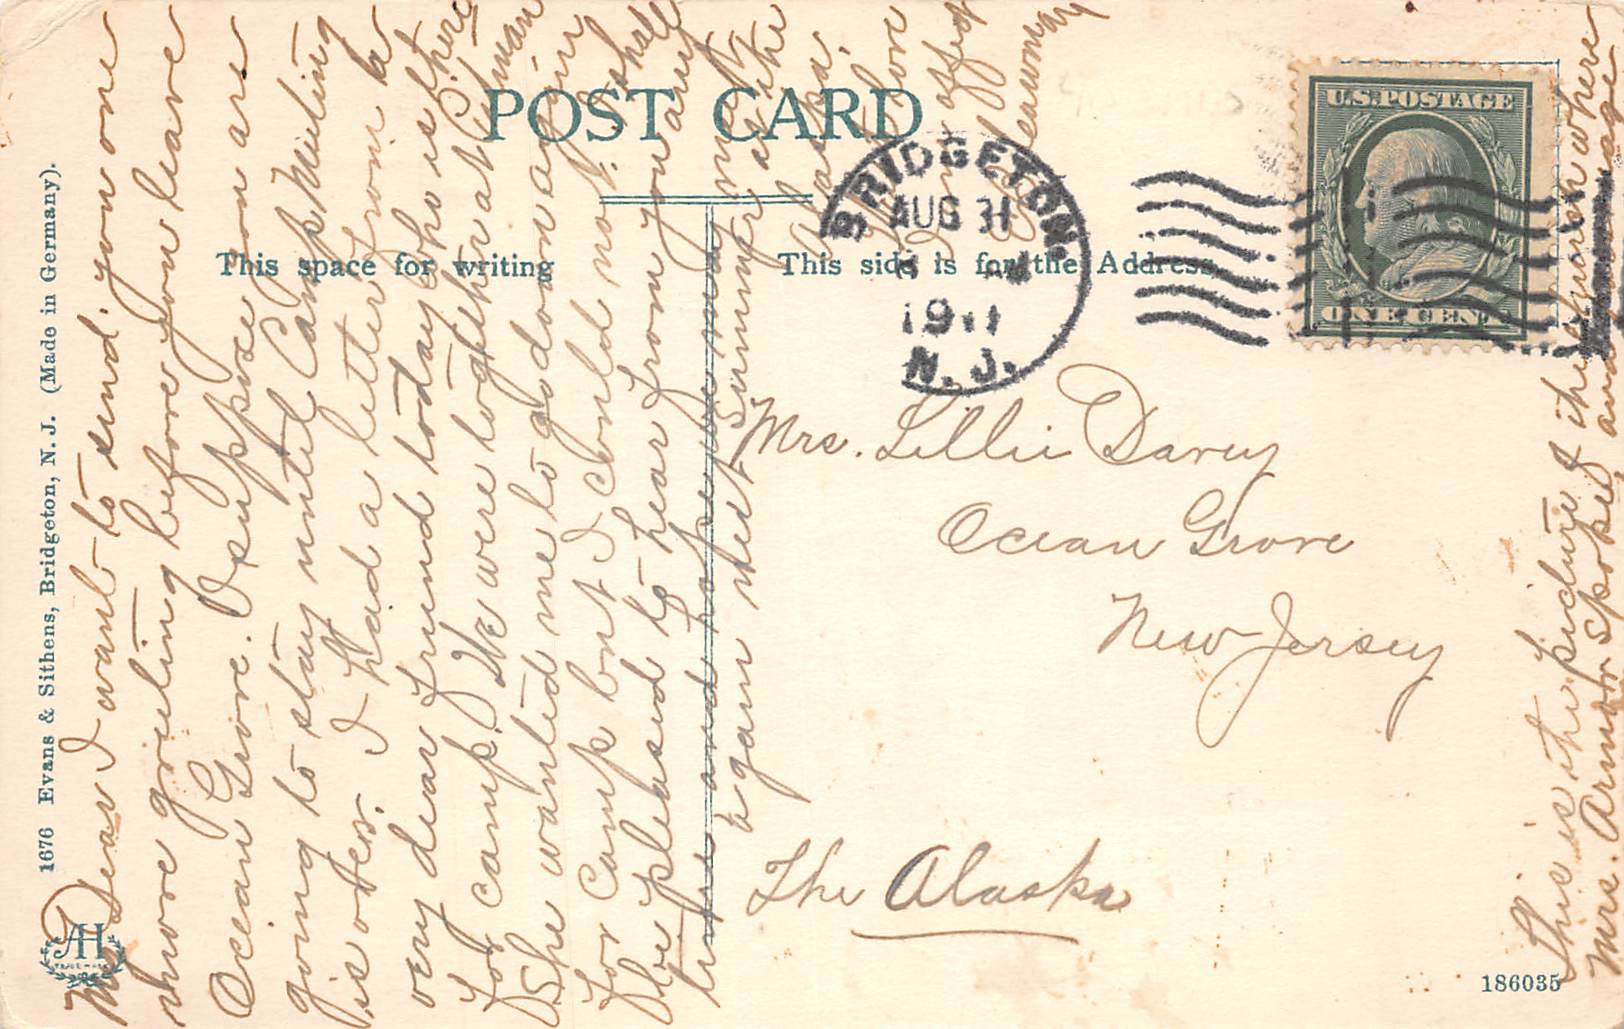 POST CARD
This space for writing
This side is for the Address.
1676 Evans & Sithens, Bridgeton, N. J. (Made in Germany).
AH
TRADE MARK
BRIDGETON
AUG 31
1911
N. J.
U.S. POSTAGE
ONE CENT
Mrs. Lillie Davey
Ocean Grove
New Jersey
The Alaska
186035
My Dear I want to send you one
more greeting before you leave
Ocean Grove. I suppose you are
going to stay until Camp Meeting
is over. I had a letter from a
very dear friend today who is there
for camp. We were together at
She wanted me to go down again
for Camp but I could not. I shall
be pleased to hear from you any
time and hope we may meet
again next Summer at the
Alaska.
Love
This is the picture of the church where
Mrs. Armor Spoke and